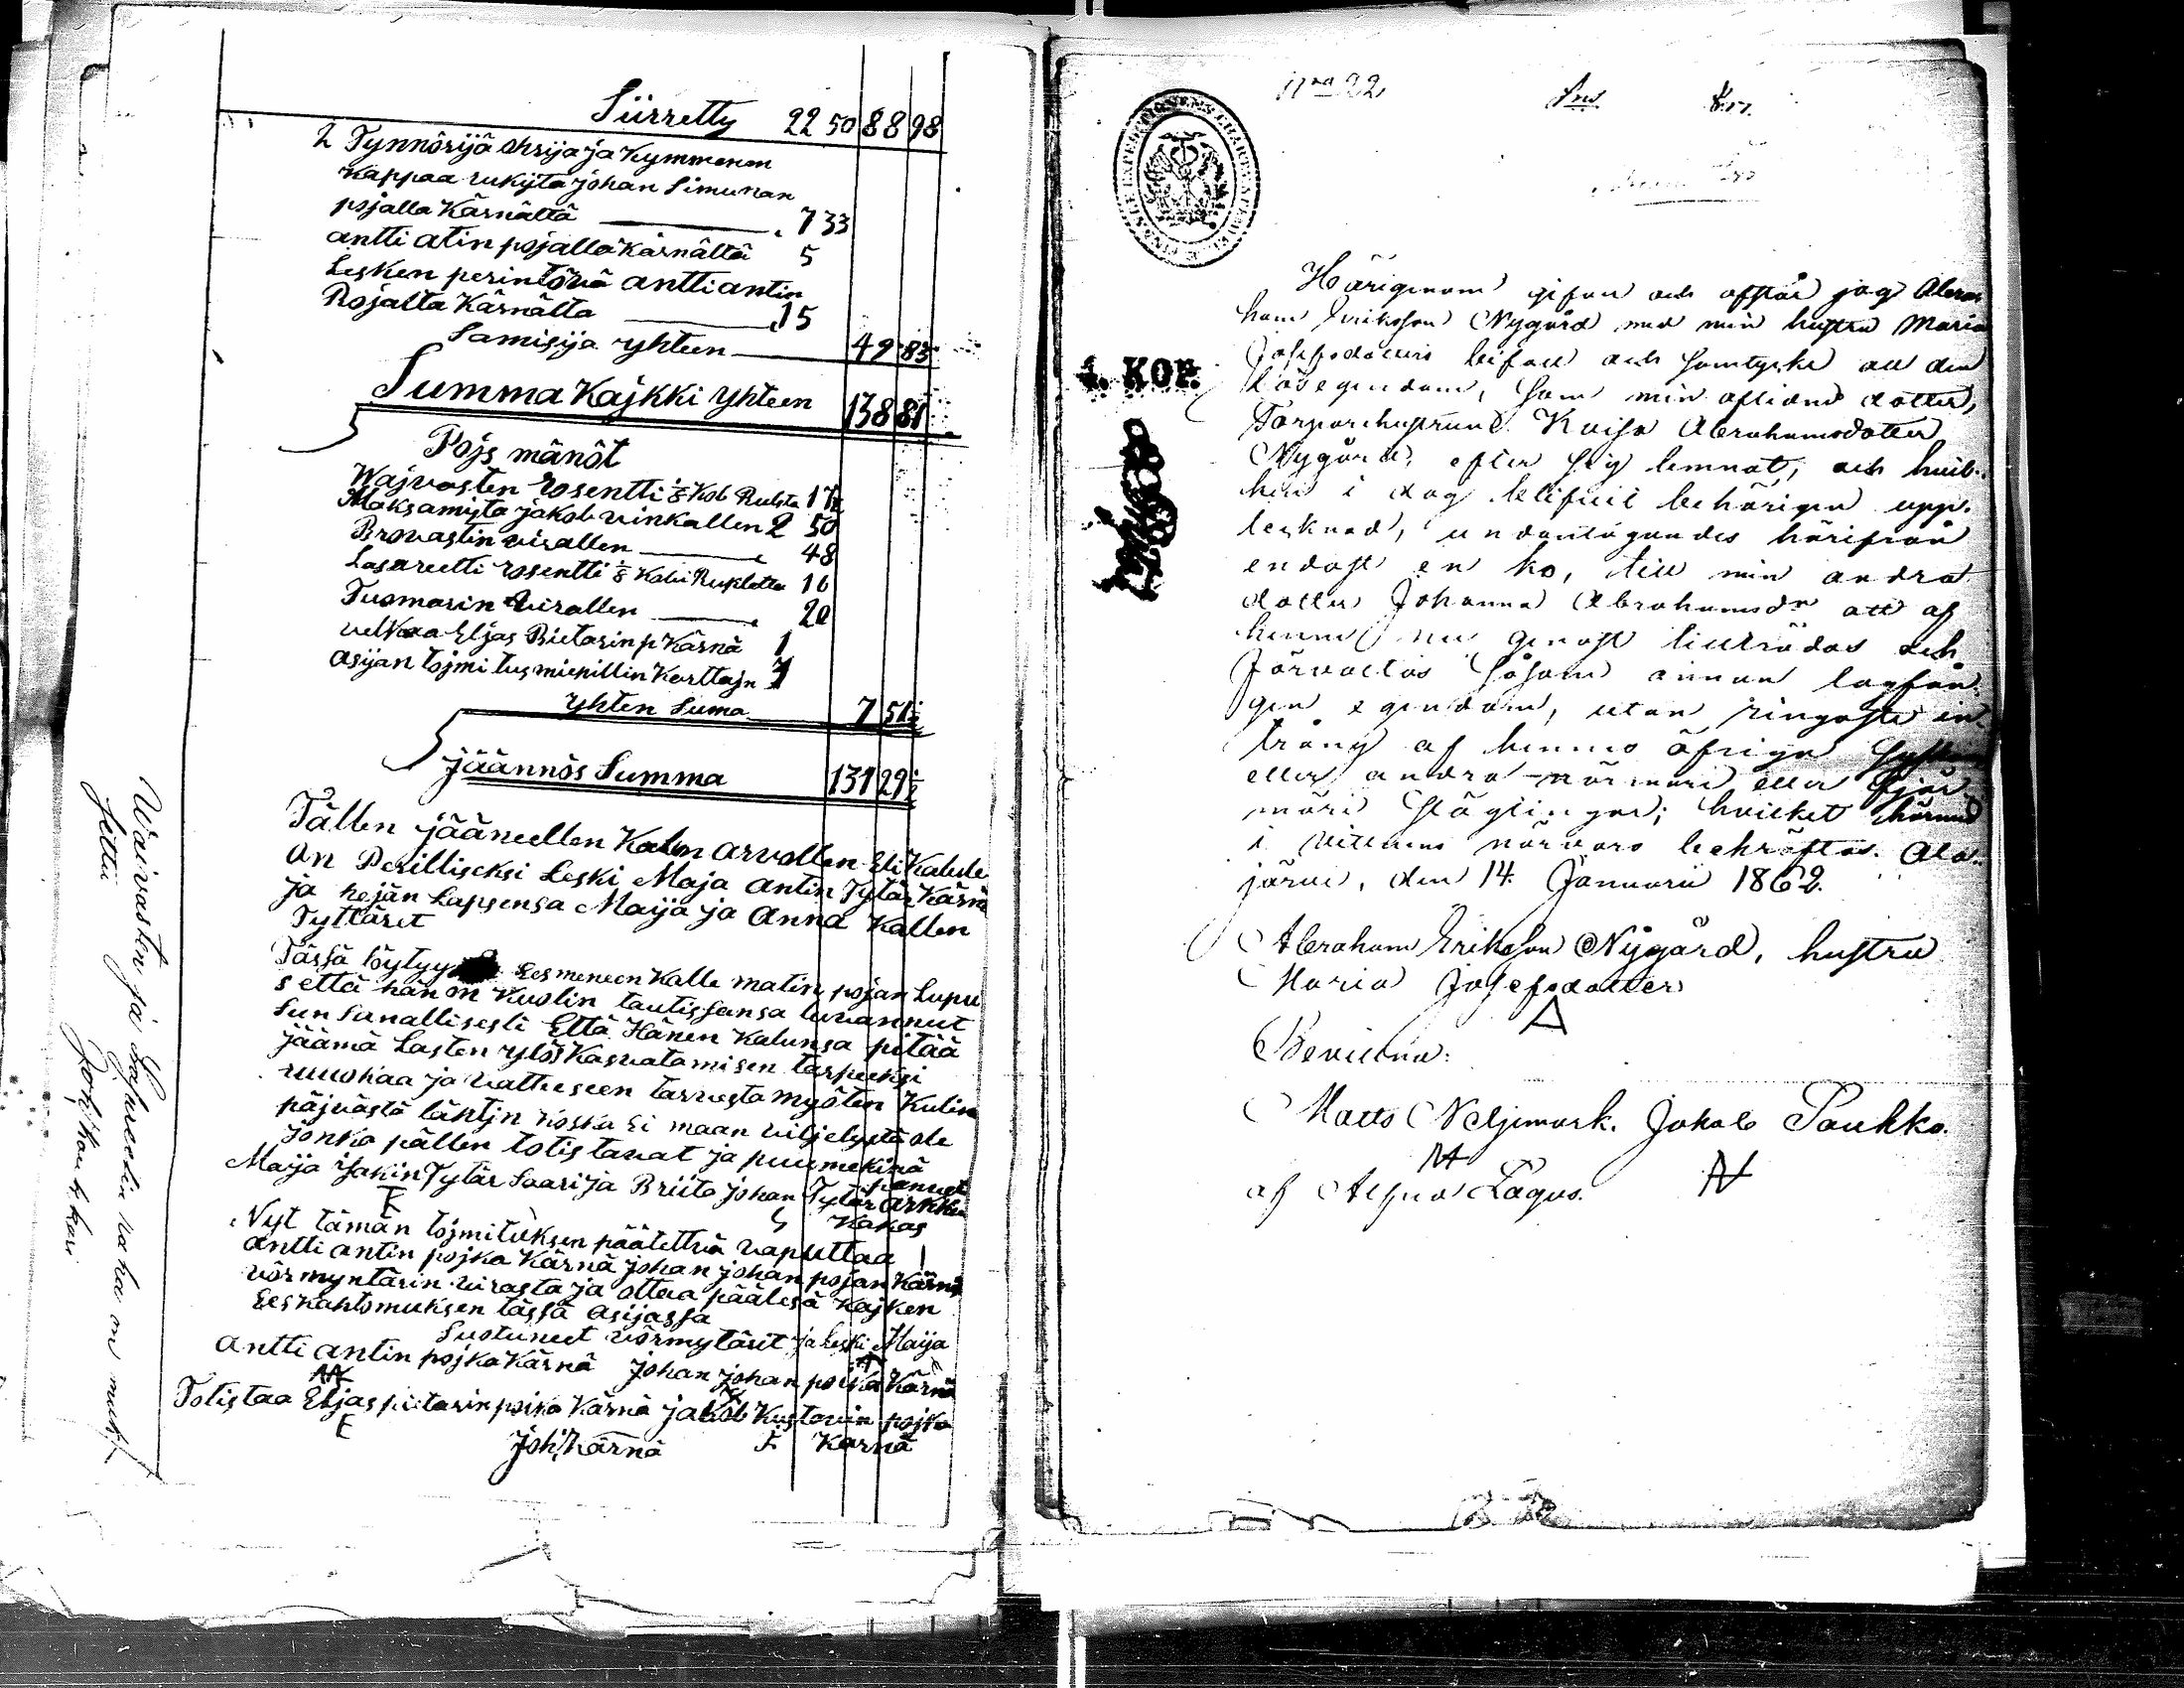 Siirretty 22 50 88 98
2 Tynnörijä ohrija ja Kymmenen
Kappaa rukijta johan Simunan
pojalla Kärnältä 7 33
antti atin pojalla kärnältä 5
Lesken perintövä antti antin
Pojalta Kärnälta 15
Samisija yhteen 49 83
Summa Kajkki yhteen 138 81
Pojs mänöt
Wajvasten rosentti 1/8 Kob Rubsta 17½
Maksamijta jakob vinkallen 2 50
Brovastin virallen 48
Lasareetti rosentti 1/8 Kobi Rupletta 16
Tuomarin virallen 20
velkaa Eljas Pietarin p Kärnä 1
asijan tojmi tus miehillin Karttajn 3
yhten Suma 7 51½
jäännös Summa 131 29½
Tällen jääneellen Kalun arvollen Eli Kalulle
on Perilliseksi Leski Maja antin Tytär Kärnä
ja hejän Lapsensa Maija ja Anna Kallen
Tyttäret
Tässä löytyy Eesmeneen Kalle matin pojan Lupu
s että hän on Kuolin tautissansa luvannut
Sun Sanallisesti Että Hänen Kalunsa pitää
jäämä Lasten ylös Kasvatamisen tarpeeksi
ruuokaa ja vatteseen tarvesta myöten Kulin
päjvästä läktjn koska Ei maan viljelystä ole
jonka pällen totis tavat ja puumerkinä
panuet
Maija isakin Tytär Saari ja Briita johan Tytär arkku
Kakas
Nyt tämän tojmituksen päätettyä vaputtaa
antti antin pojka Kärnä johan johan pojan Kärnä
vörmyntärin virasta ja ottaa päälesä kajken
Eeskahtomuksen tässä asijassa
Suotuneet vörmytärit ja Leski Maija
antti antin pojka Kärnä johan johan poika Kärnä
Totistaa Eljas pietarin poika Kärnä jakob Kustavin pojka
Joh: Kärnä Kärnä
Waivasten ja Lasareetin raha on maks
Nra 22
4. KOP.
Härigenom gifver och afstår jag Abra
ham Eriksson Nygård med min hustru Maria
Josefsdotters bifall och samtycke all den
lösegendom, som min aflidna dotter,
Torparehustrun Kaisa Abrahamsdotter
Nygård, efter sig lemnat, och hvil-
ken i dag blifvit behörigen upp-
tecknad, undantagandes härifrån
endast en ko, till min andra
dotter Johanna Abrahamsdr att af
henne nu genast tillträdas och
förvaltas såsom annan lagfån-
gen egendom, utan ringaste in-
trång af hennes öfriga syskon
eller andra närmare eller fjär-
mare släglingar; hvilket härmed
i vittnens närvaro bekräftas. Ala-
järvi, den 14. Januari 1862.
Abraham Eriksson Nygård, hustru
Maria Josefsdotter
Bevittna:
Matts Neljimark. Jakob Paukko.
af Lagus.